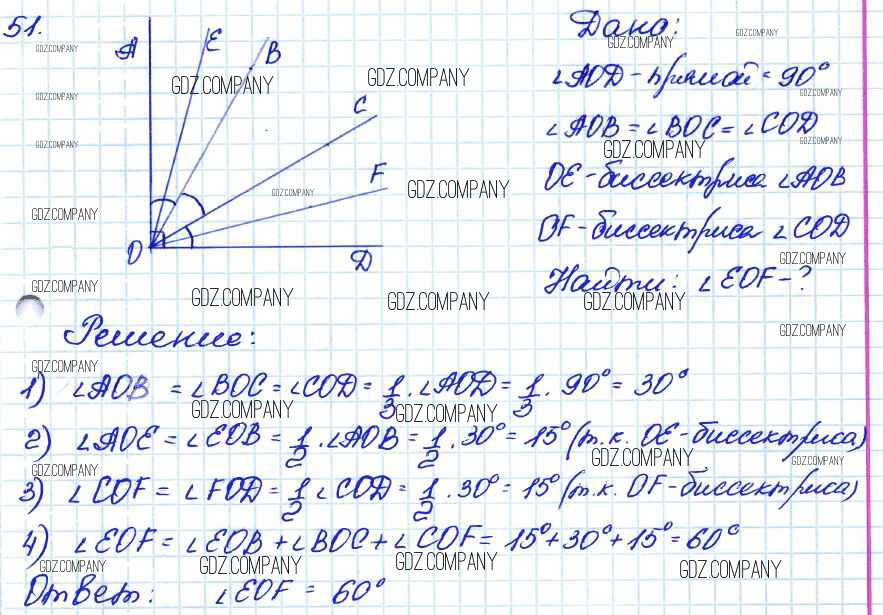 51.
A E B C F D O
Дано:
∠AOD - прямой = 90°
∠AOB = ∠BOC = ∠COD
OE - биссектриса ∠AOB
OF - биссектриса ∠COD
Найти: ∠EOF - ?
Решение:
1) ∠AOB = ∠BOC = ∠COD = 1/3 · ∠AOD = 1/3 · 90° = 30°
2) ∠AOE = ∠EOB = 1/2 · ∠AOB = 1/2 · 30° = 15° (т.к. OE - биссектриса)
3) ∠COF = ∠FOD = 1/2 ∠COD = 1/2 · 30° = 15° (т.к. OF - биссектриса)
4) ∠EOF = ∠EOB + ∠BOC + ∠COF = 15° + 30° + 15° = 60°
Ответ: ∠EOF = 60°
GDZ.COMPANY